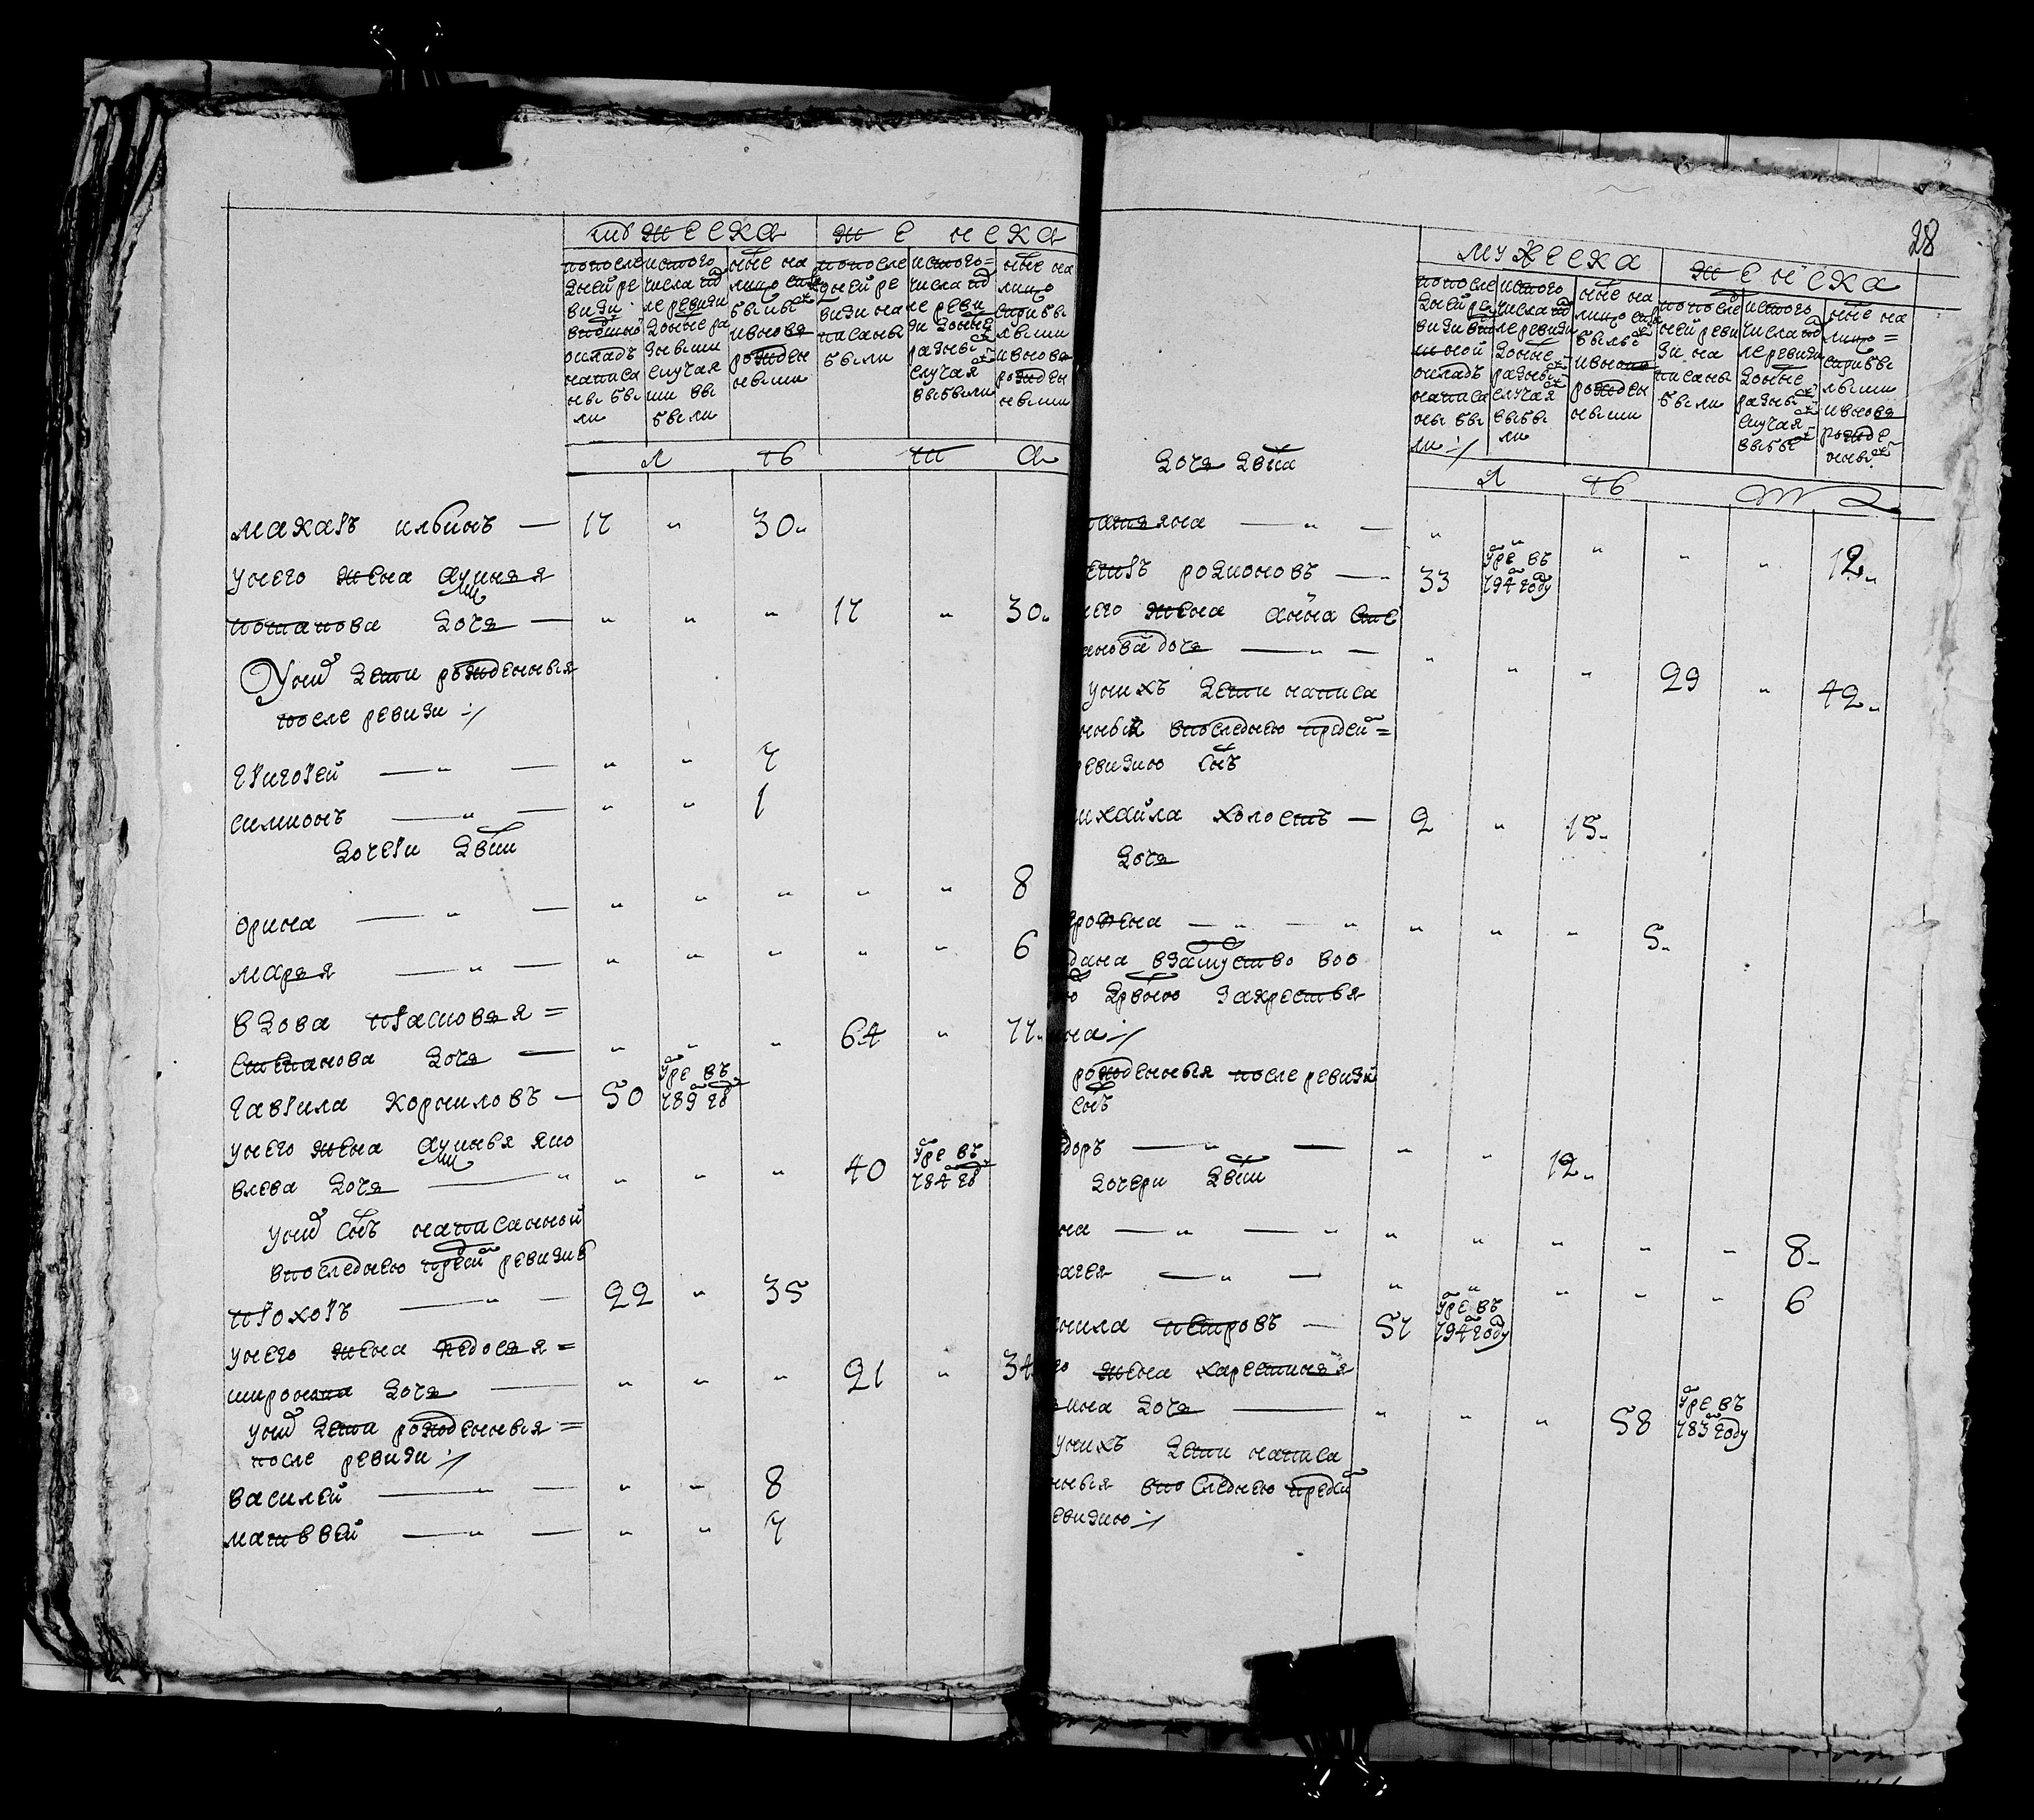 мужеска женска
попоследней ревизи вподушной окладъ написаны были
истого числа после ревизи зоные разными случаями выбыли
ныне налицо сприбылыми ивновь рожденными
попоследней ревизи написаны были
истого числа после ревизи зоные разными случаями выбыли
ныне налицо сприбылыми ивновь рожденными
л тъ л та
макаръ ильинъ — 17 „ 30„
унего жена аулиняя
потапова дочь — „ „ „ 17 „ 30„
Уних дети рожденныя
после ревизи :/
григорей — „ — „ „ 7
симионъ — „ — „ „ 1
дочери две
орина — „ — „ „ „ „ „ 8
марья — „ — „ „ „ „ „ 6
вдова прасковья =
степанова дочь — „ „ „ 64 „ 77„
гаврила корниловъ — 50 умре въ 789 году
унего жена аулинья яко
влева дочь — „ „ „ „ 40 умре въ 784 году
уних сынъ написанной
впоследнею пред сей ревизию
прохоръ — „ — 22 „ 35
унего жена федосья =
миронова дочь — „ „ „ 21 „ 34
уних дети рожденныя =
после ревизи :/
василей — „ — „ „ 8
матвей — „ — „ „ 7
28
мужеска женска
попоследней ревизи вподушной окладъ написаны были :/
истого числа после ревизи зоные разными случаями выбыли
ныне налицо сприбылыми ивновь рожденными
попоследней ревизи написаны были
истого числа после ревизи зоные разными случаями выбыли
ныне налицо = сприбылыми ивновь рожденными
л тъ л та
дочь двца
— „ — „ „ „ „ „ 12„
родионовъ — 33 умре въ 794 году
него жена анна сте
анова дочь — „ — „ „ „ 29 „ 42„
унихъ дети написа
нныя впоследнею пред сей =
ревизию сынъ
михайла холостъ — 2 „ 15„
дочь
— „ — „ „ „ „ 5„
дана взамужество воо
ю деревню закрестья
нна :/
рожденныя после ревизи
сынъ
доръ — „ — „ „ 12„
дочери две
на — „ — „ „ „ „ „ „ 8„
— „ — „ „ „ „ „ 6
нила петровъ — 57 умре въ 794 году
го жена харестинья
ина дочь — „ „ „ 58 умре въ 783 году
унихъ дети написа
нныя впоследнею пред сей
ревизию :/